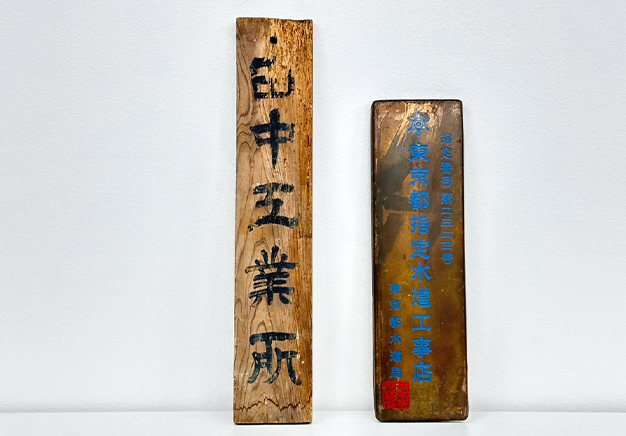 中工業所
指定番号 第二三二三号
東京都指定水道工事店
東京都水道局